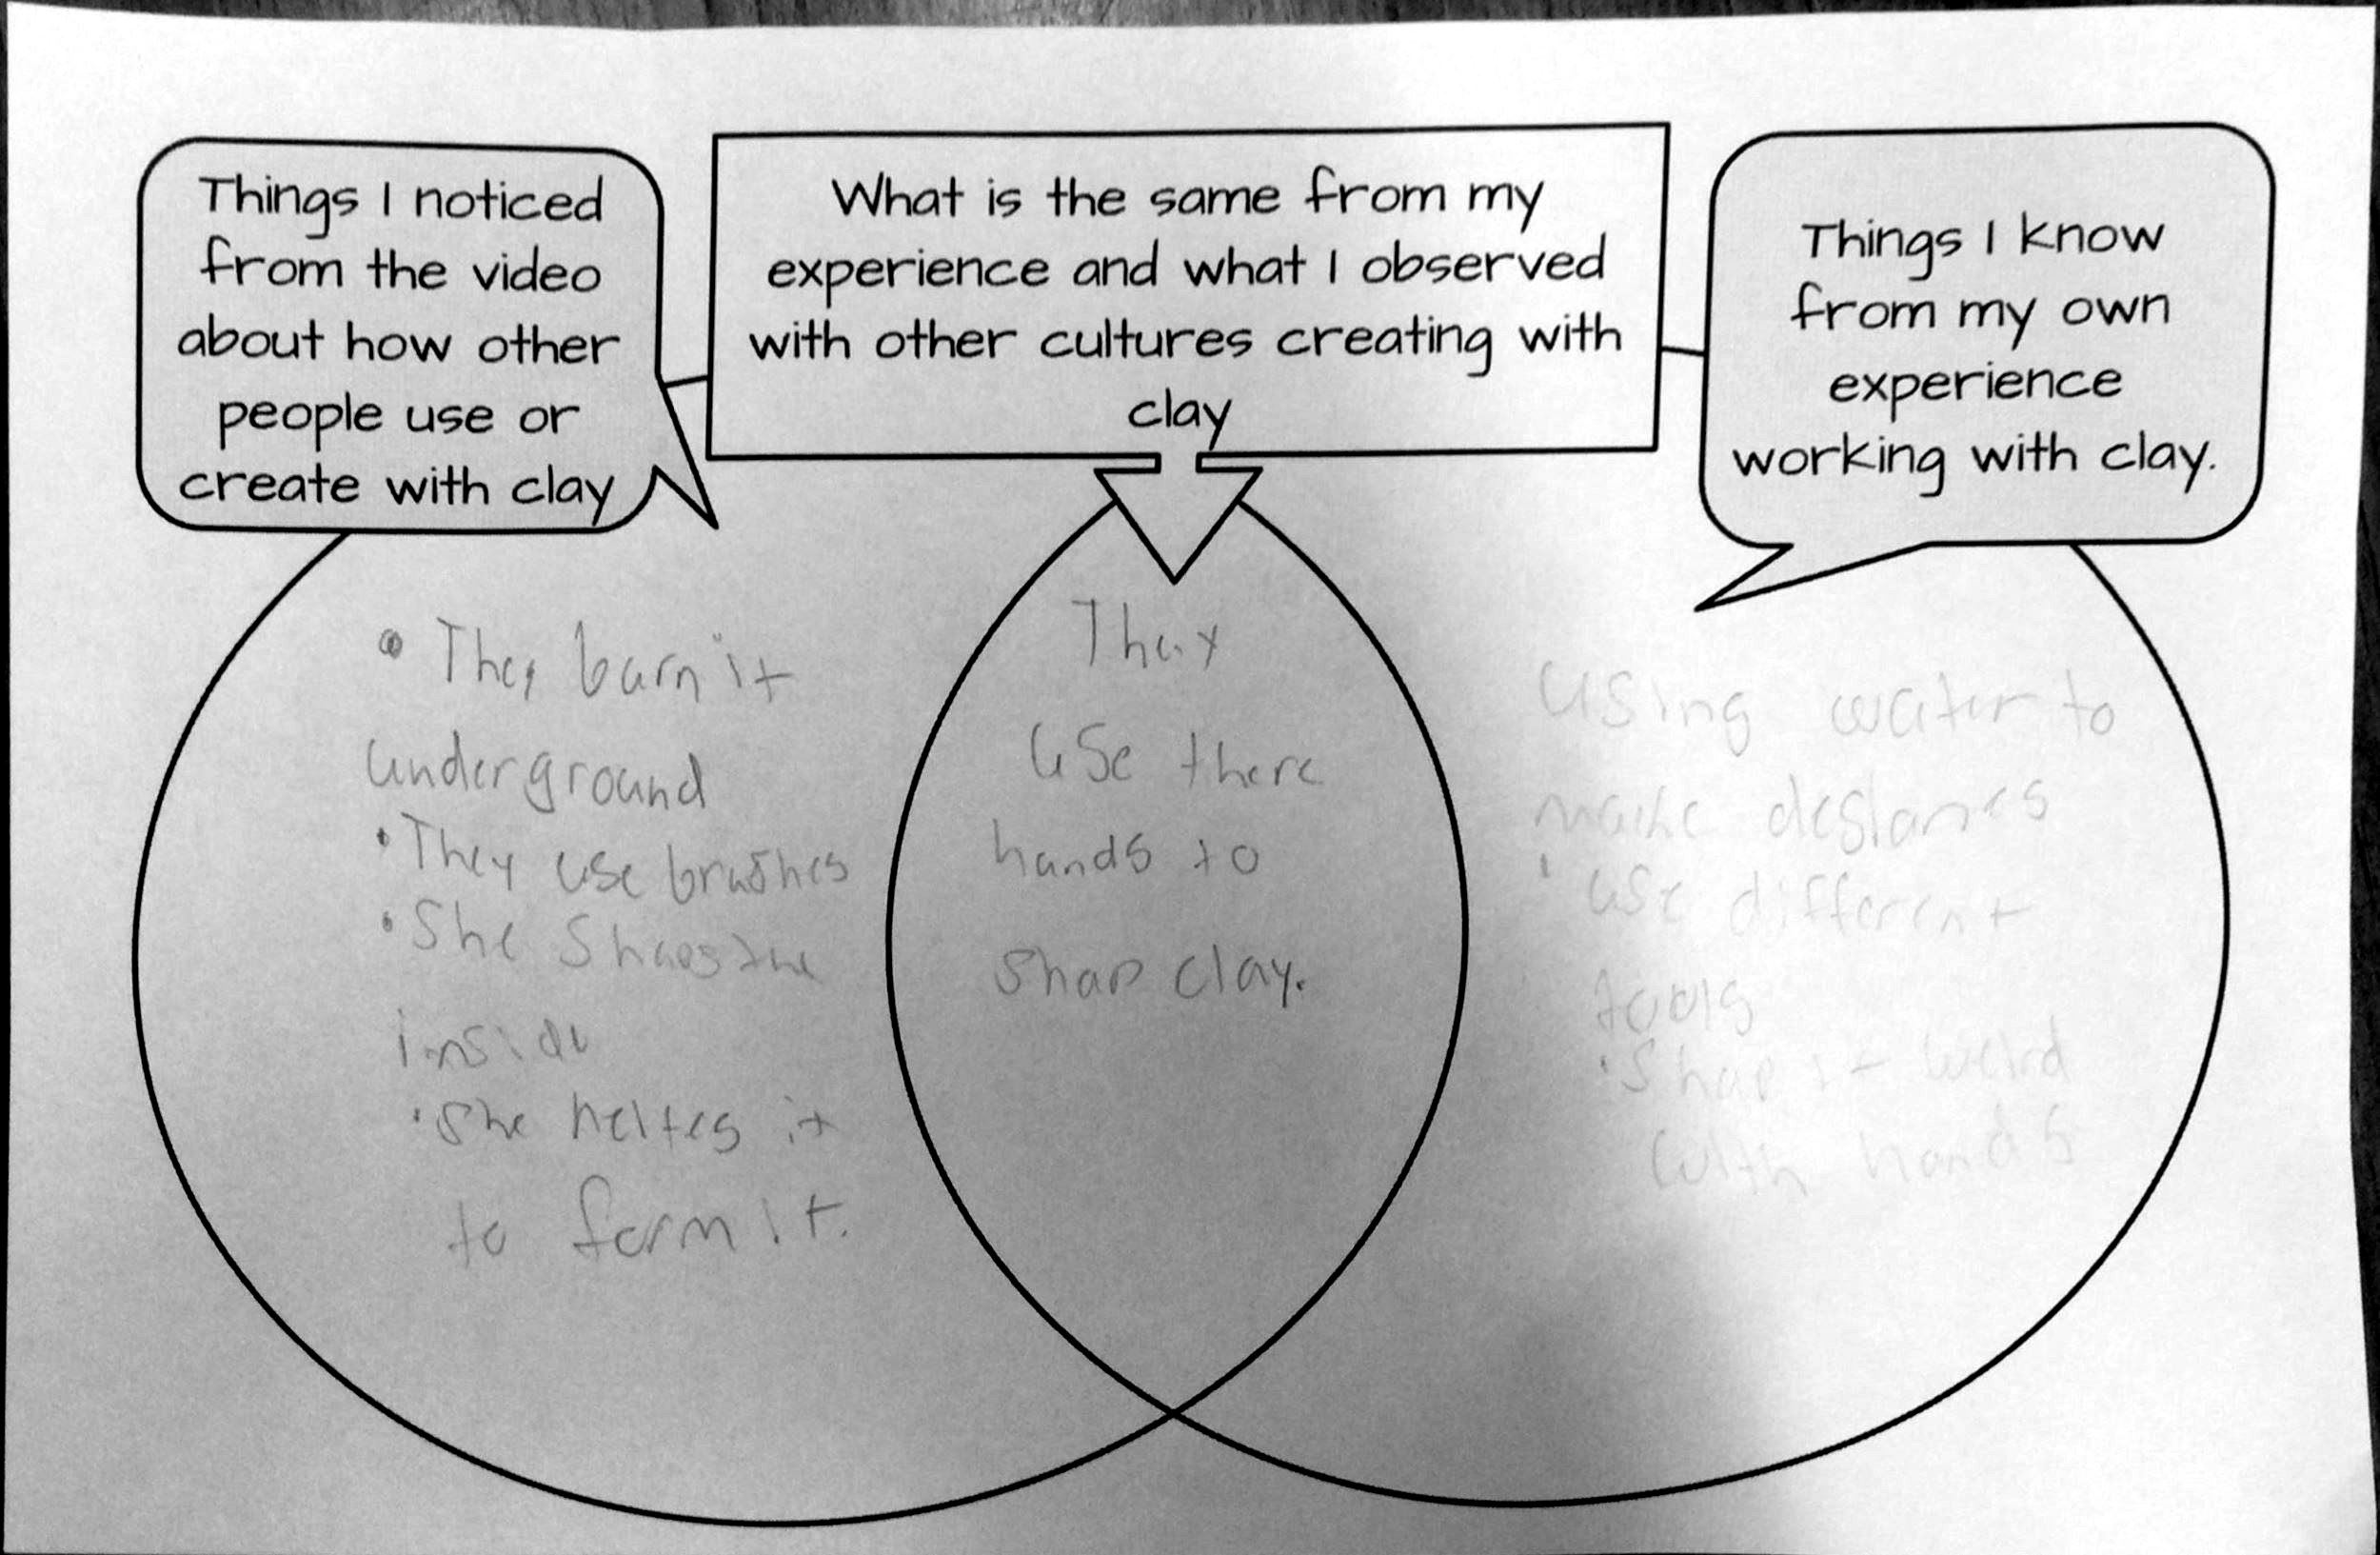 Things I noticed
from the video
about how other
people use or
create with clay
What is the same from my
experience and what I observed
with other cultures creating with
clay
Things I know
from my own
experience
working with clay.
• They burn it
underground
• They use brushes
• She
insid
• She it
to form it.
They
use there
hands to
shap clay.
using water to
make
• use different
tools
• Shap it weird
with hands